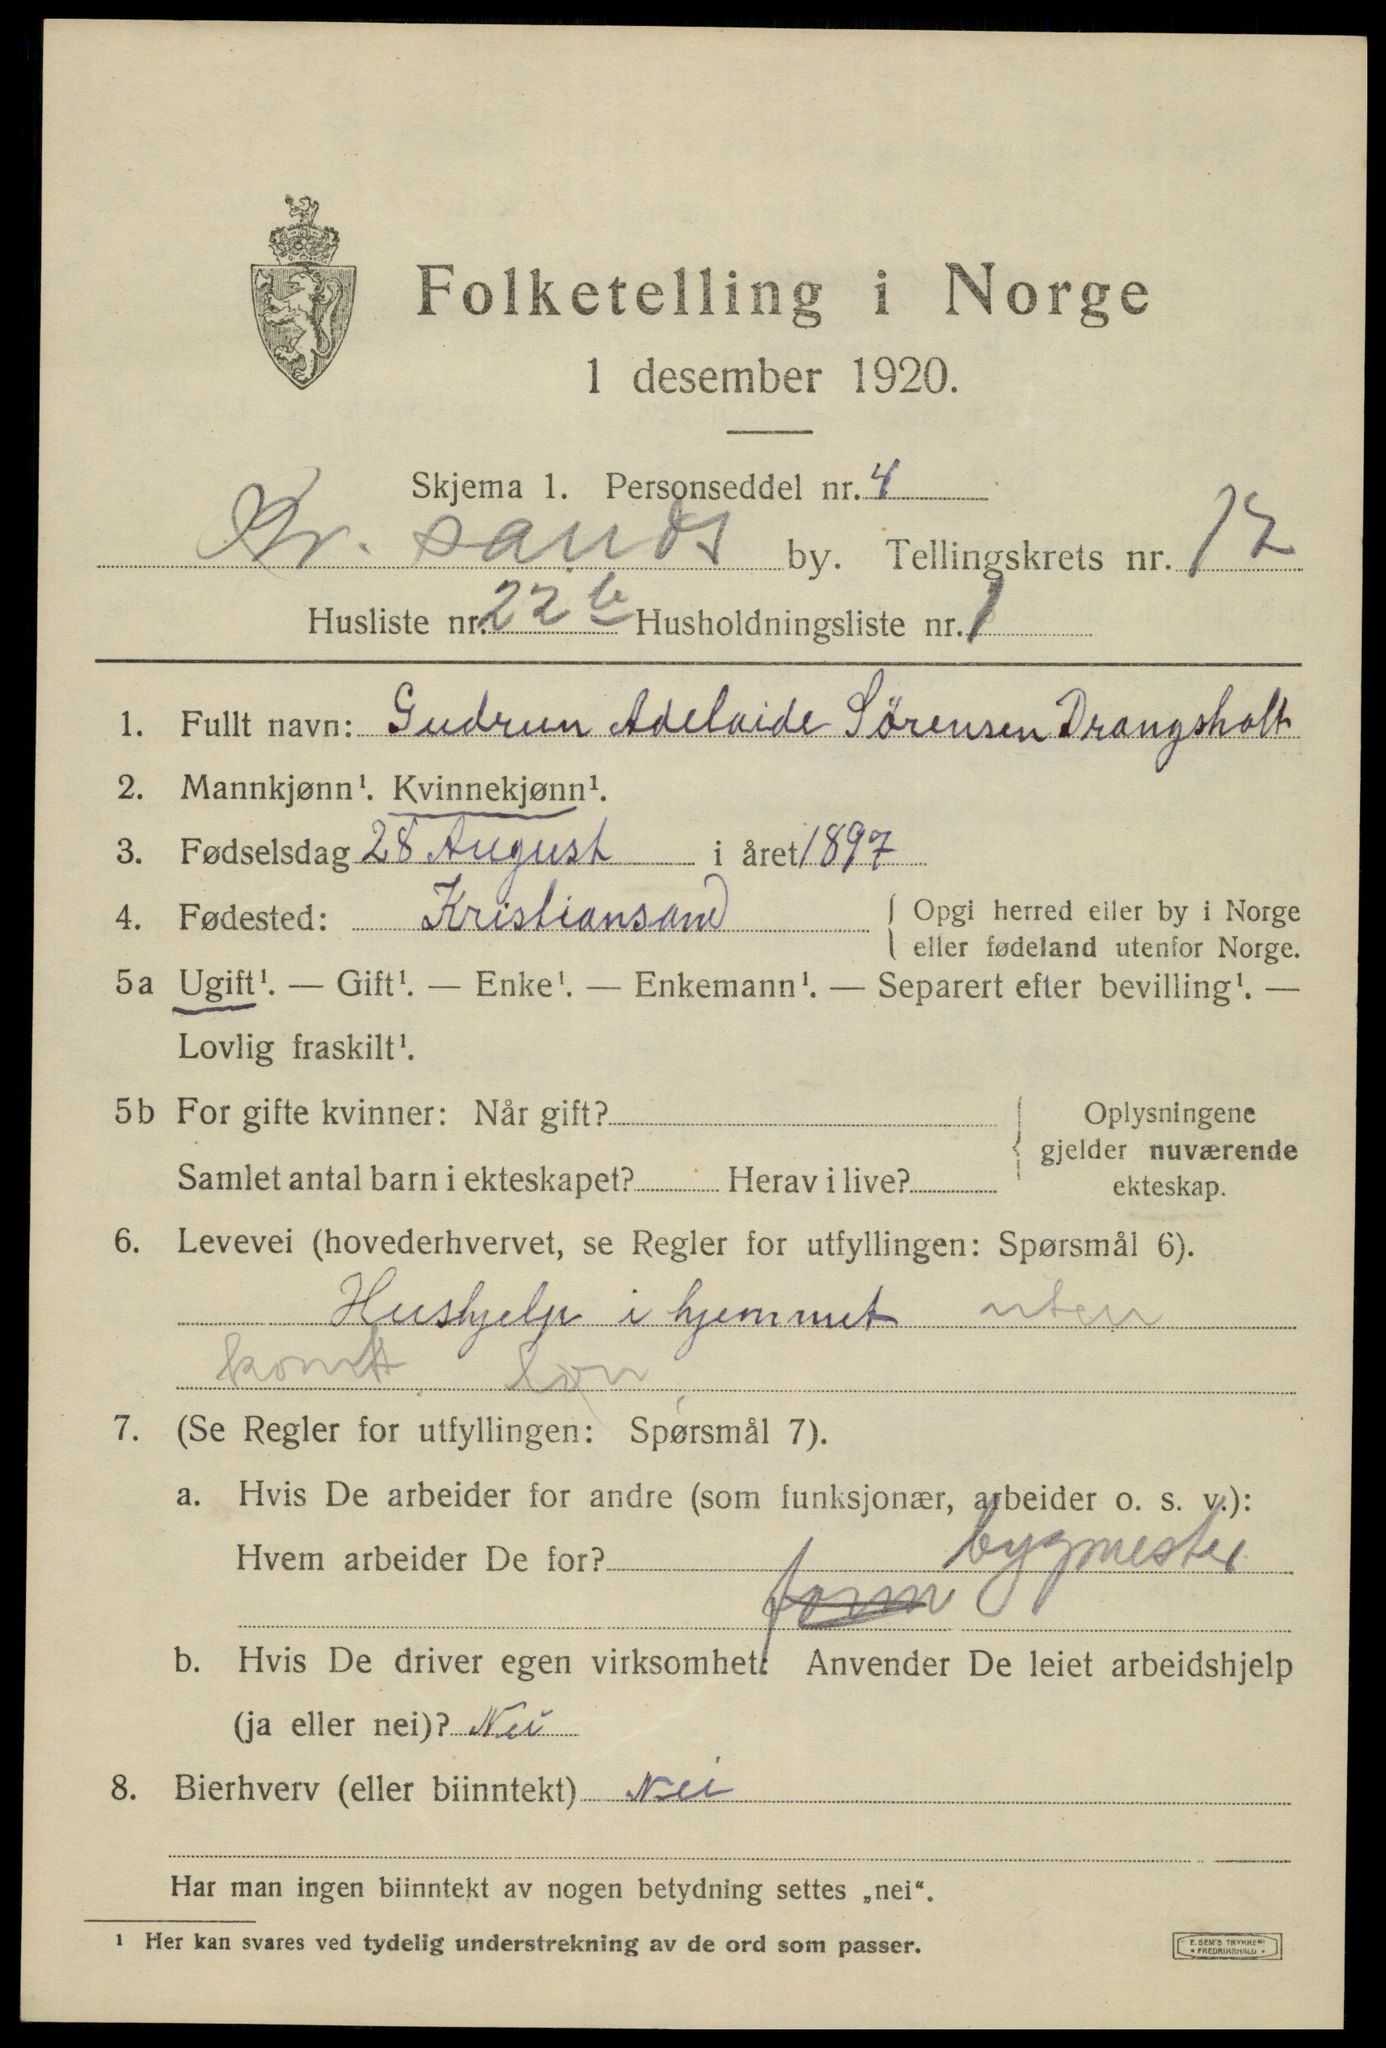 Folketelling i Norge
1 desember 1920.
Skjema 1. Personseddel nr. 4
Kr. sands by. Tellingskrets nr. 12
Husliste nr. 22 b Husholdningsliste nr. 1
1. Fullt navn: Gudrun Adelaide Sörensen Drangsholt
2. Mannkjønn¹. Kvinnekjønn¹.
3. Fødselsdag 28 August i året 1897
4. Fødested: Kristiansand { Opgi herred eller by i Norge
eller fødeland utenfor Norge.
5a Ugift¹. — Gift¹. — Enke¹. — Enkemann¹. — Separert efter bevilling¹. —
Lovlig fraskilt¹.
5b For gifte kvinner: Når gift? { Oplysningene
gjelder nuværende
Samlet antal barn i ekteskapet? Herav i live? ekteskap.
6. Levevei (hovederhvervet, se Regler for utfyllingen: Spørsmål 6).
Hushjelp i hjemmet uten
kontt. løn
7. (Se Regler for utfyllingen: Spørsmål 7).
a. Hvis De arbeider for andre (som funksjonær, arbeider o. s. v.):
Hvem arbeider De for? bygmester
b. Hvis De driver egen virksomhet: Anvender De leiet arbeidshjelp
(ja eller nei)? Nei
8. Bierhverv (eller biinntekt) Nei
Har man ingen biinntekt av nogen betydning settes „nei“.
¹ Her kan svares ved tydelig understrekning av de ord som passer.
E. SEM'S TRYKKERI
• FREDRIKSHALD •